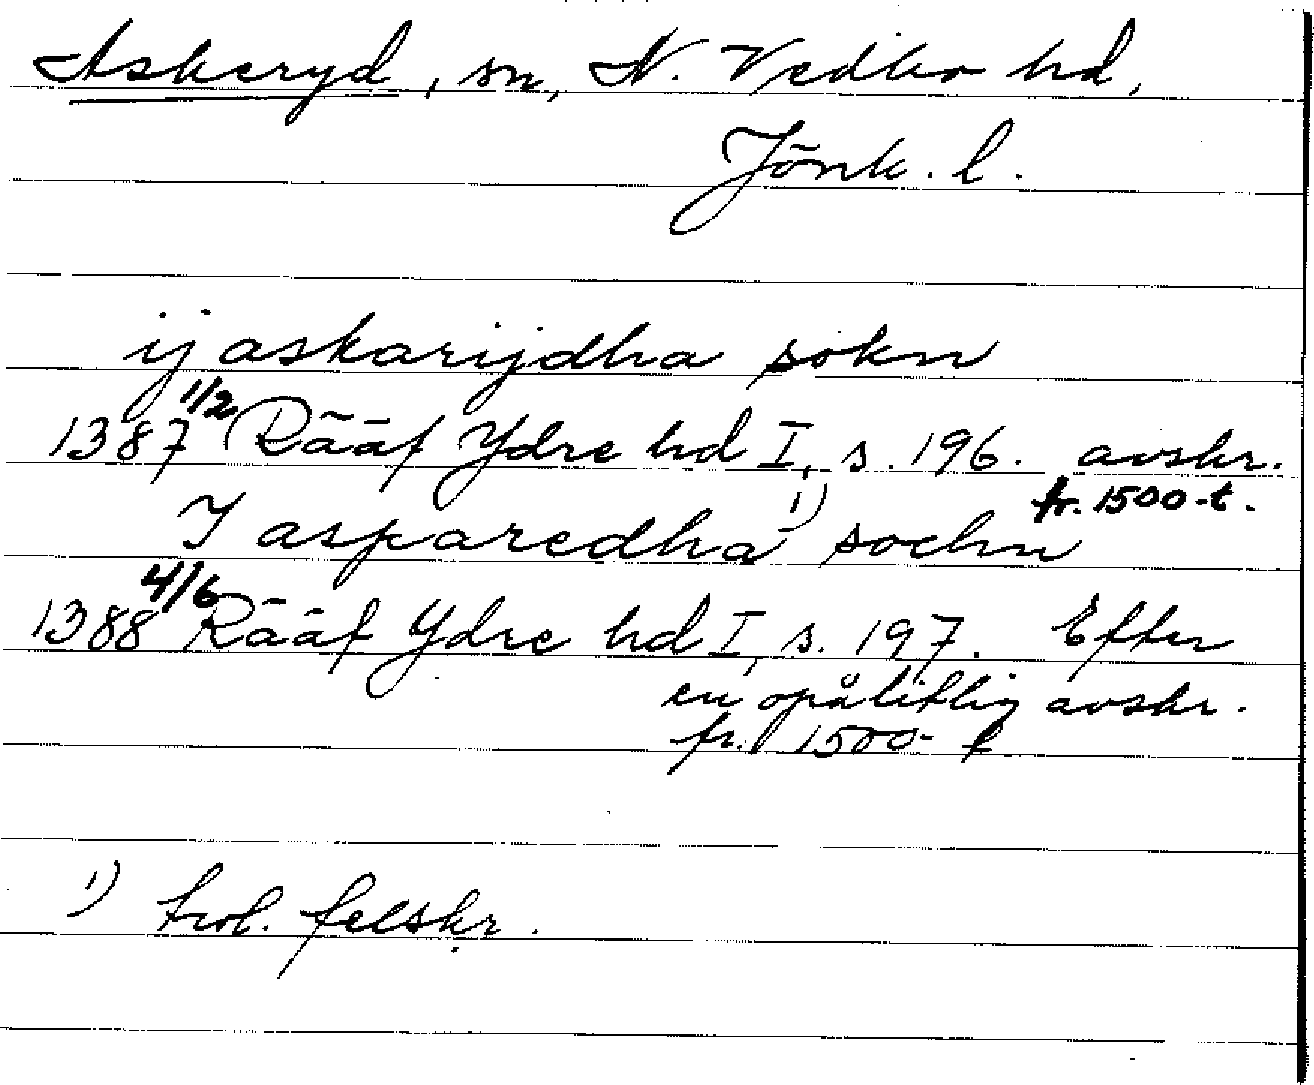 Askeryd, sn, N. Vedbo hd,
Jönk. l.
ij askarijdha sokn
1387 1/2 Rääf Ydre hd I, s. 196. avskr.
fr. 1500-t.
I asparedha 1) sochn
1388 4/6 Rääf Ydre hd I, s. 197. Efter
en opålitlig avskr.
fr. 1500-t
1) trol. felskr.